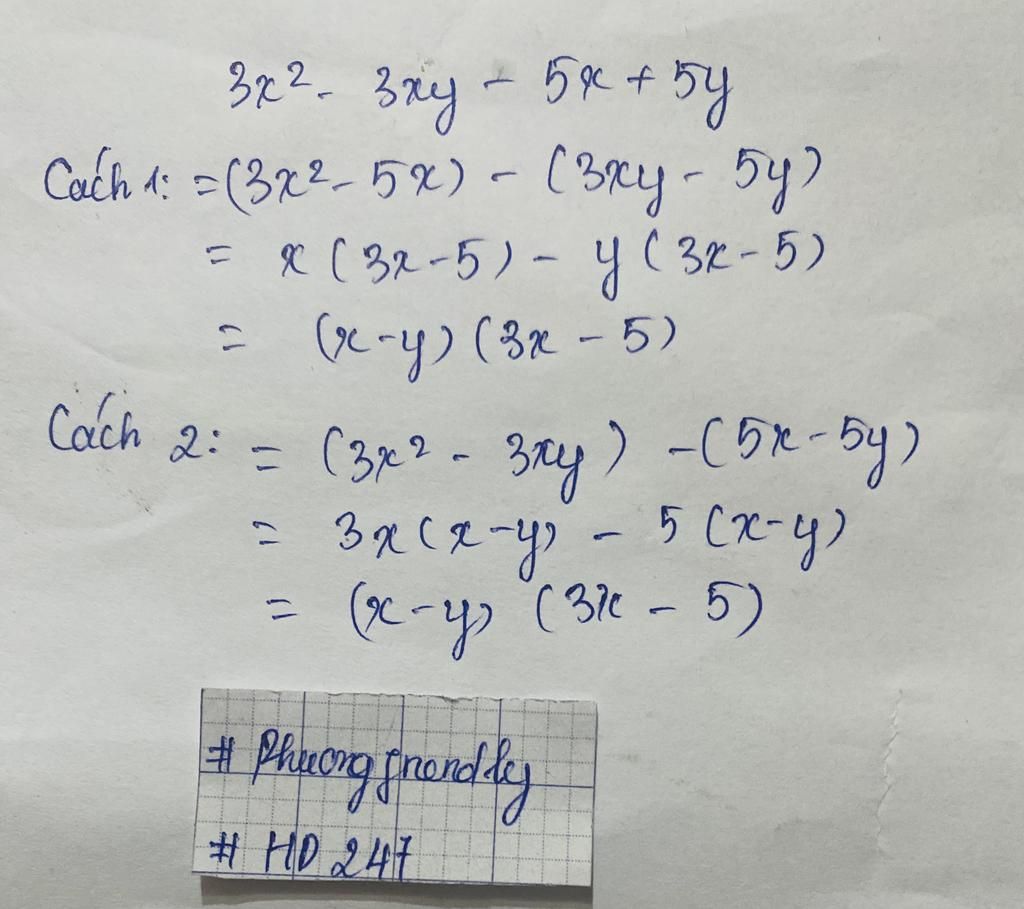 3x² - 3xy - 5x + 5y
Cách 1: = (3x² - 5x) - (3xy - 5y)
= x (3x - 5) - y (3x - 5)
= (x - y) (3x - 5)
Cách 2: = (3x² - 3xy) - (5x - 5y)
= 3x (x - y) - 5 (x - y)
= (x - y) (3x - 5)
# Phuongfriendly
# HD 247